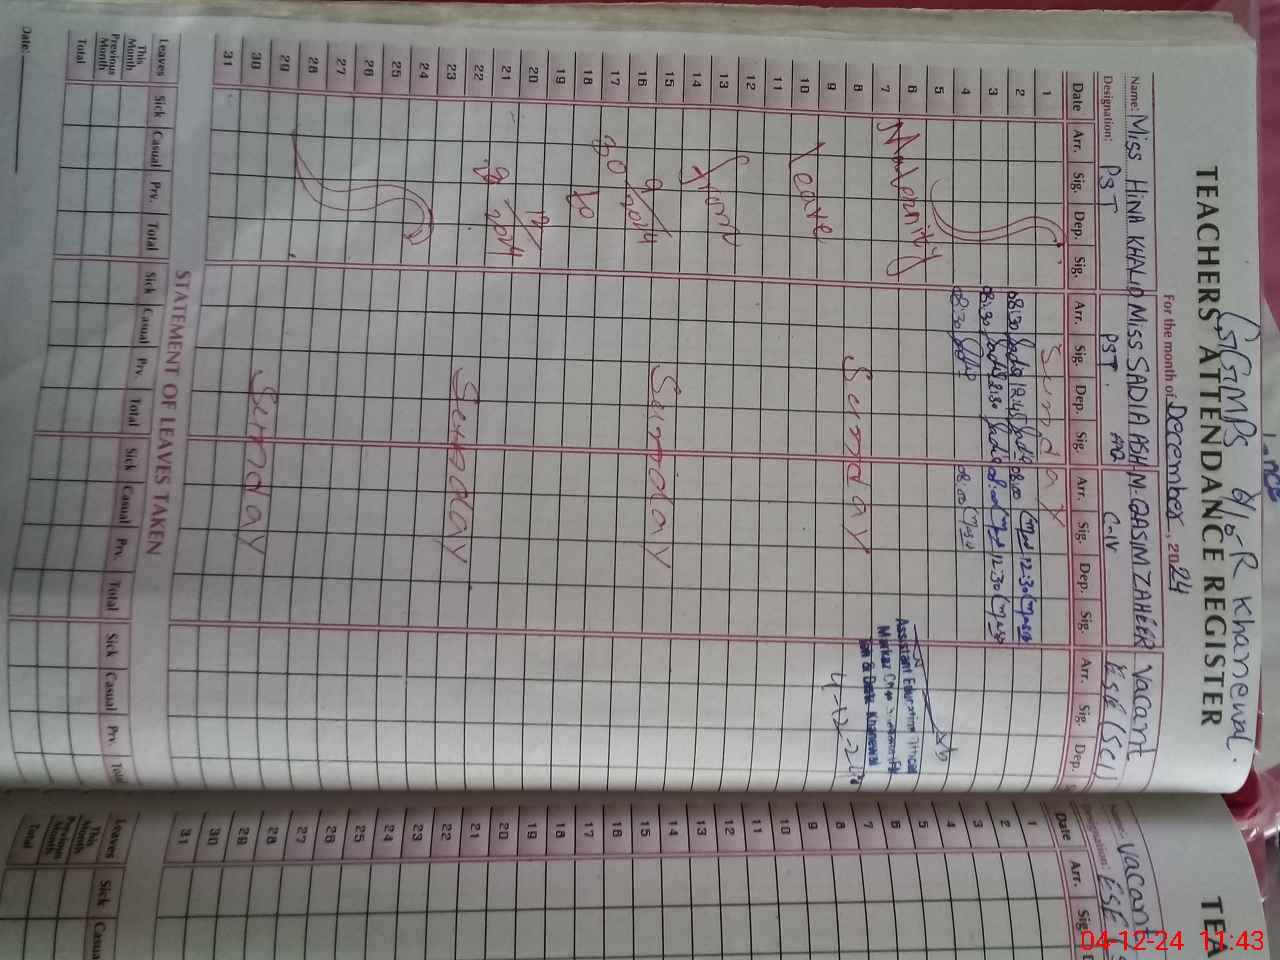 GGMPS 6/10-R Khanewal.
TEACHERS ATTENDANCE REGISTER
For the month of December, 2024
Name: Miss HINA KHALID Miss SADIA ASHI M. QASIM ZAHEER Vacant
Designation: PST PST. C-IV ESE (SCI)
Date Arr. Sig. Dep. Sig. Arr. Sig. Dep. Sig. Arr. Sig. Dep. Sig. Arr. Sig. Dep.
1 Sunday
2 08:30 12:45 08:00 12:30
3 08:30 12:30 08:00 12:30
4 08:30 08:00
5
6
7
8 Sunday
9
10
11
12
13
14
15 Sunday
16
17
18
19
20
21
22 Sunday
23
24
25
26
27
28
29 Sunday
30
31
Maternity
Leave
from
30/9/2024
to
29/12/2024
Assistant Education Officer
Markaz
Khanewal
4-12-24
STATEMENT OF LEAVES TAKEN
Leaves Sick Casual Prv. Total Sick Casual Prv. Total Sick Casual Prv. Total Sick Casual Prv. Total
This Month
Previous Month
Total
Date:
TEA
Name: Vacant
Designation: ESE
Date Arr. Sig
1
2
3
4
5
6
7
8
9
10
11
12
13
14
15
16
17
18
19
20
21
22
23
24
25
26
27
28
29
30
31
Leaves Sick Casua
This Month
Previous Month
Total
04-12-24 11:43